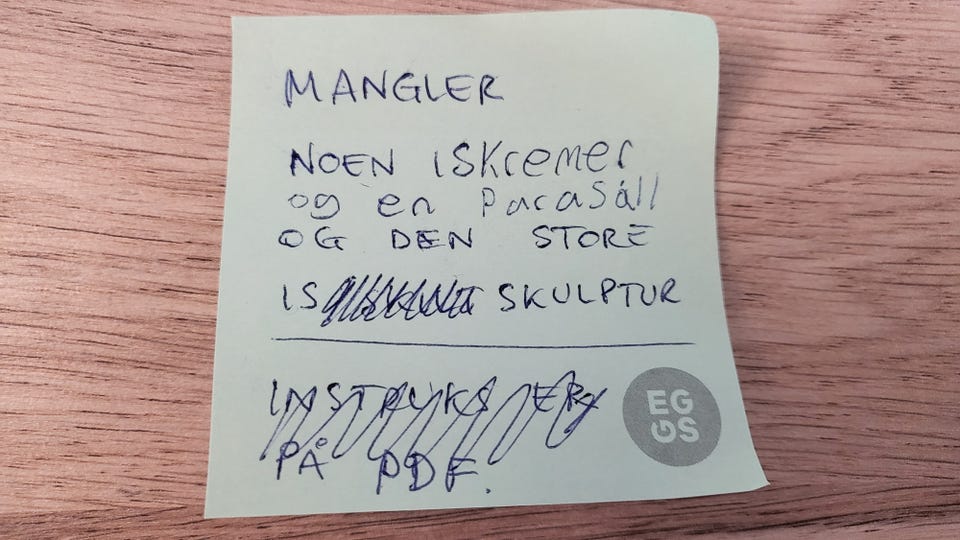 MANGLER
NOEN ISKremer
og en Parasåll
OG DEN STORE
IS SKULPTUR
PÅ PDF.
EGGS